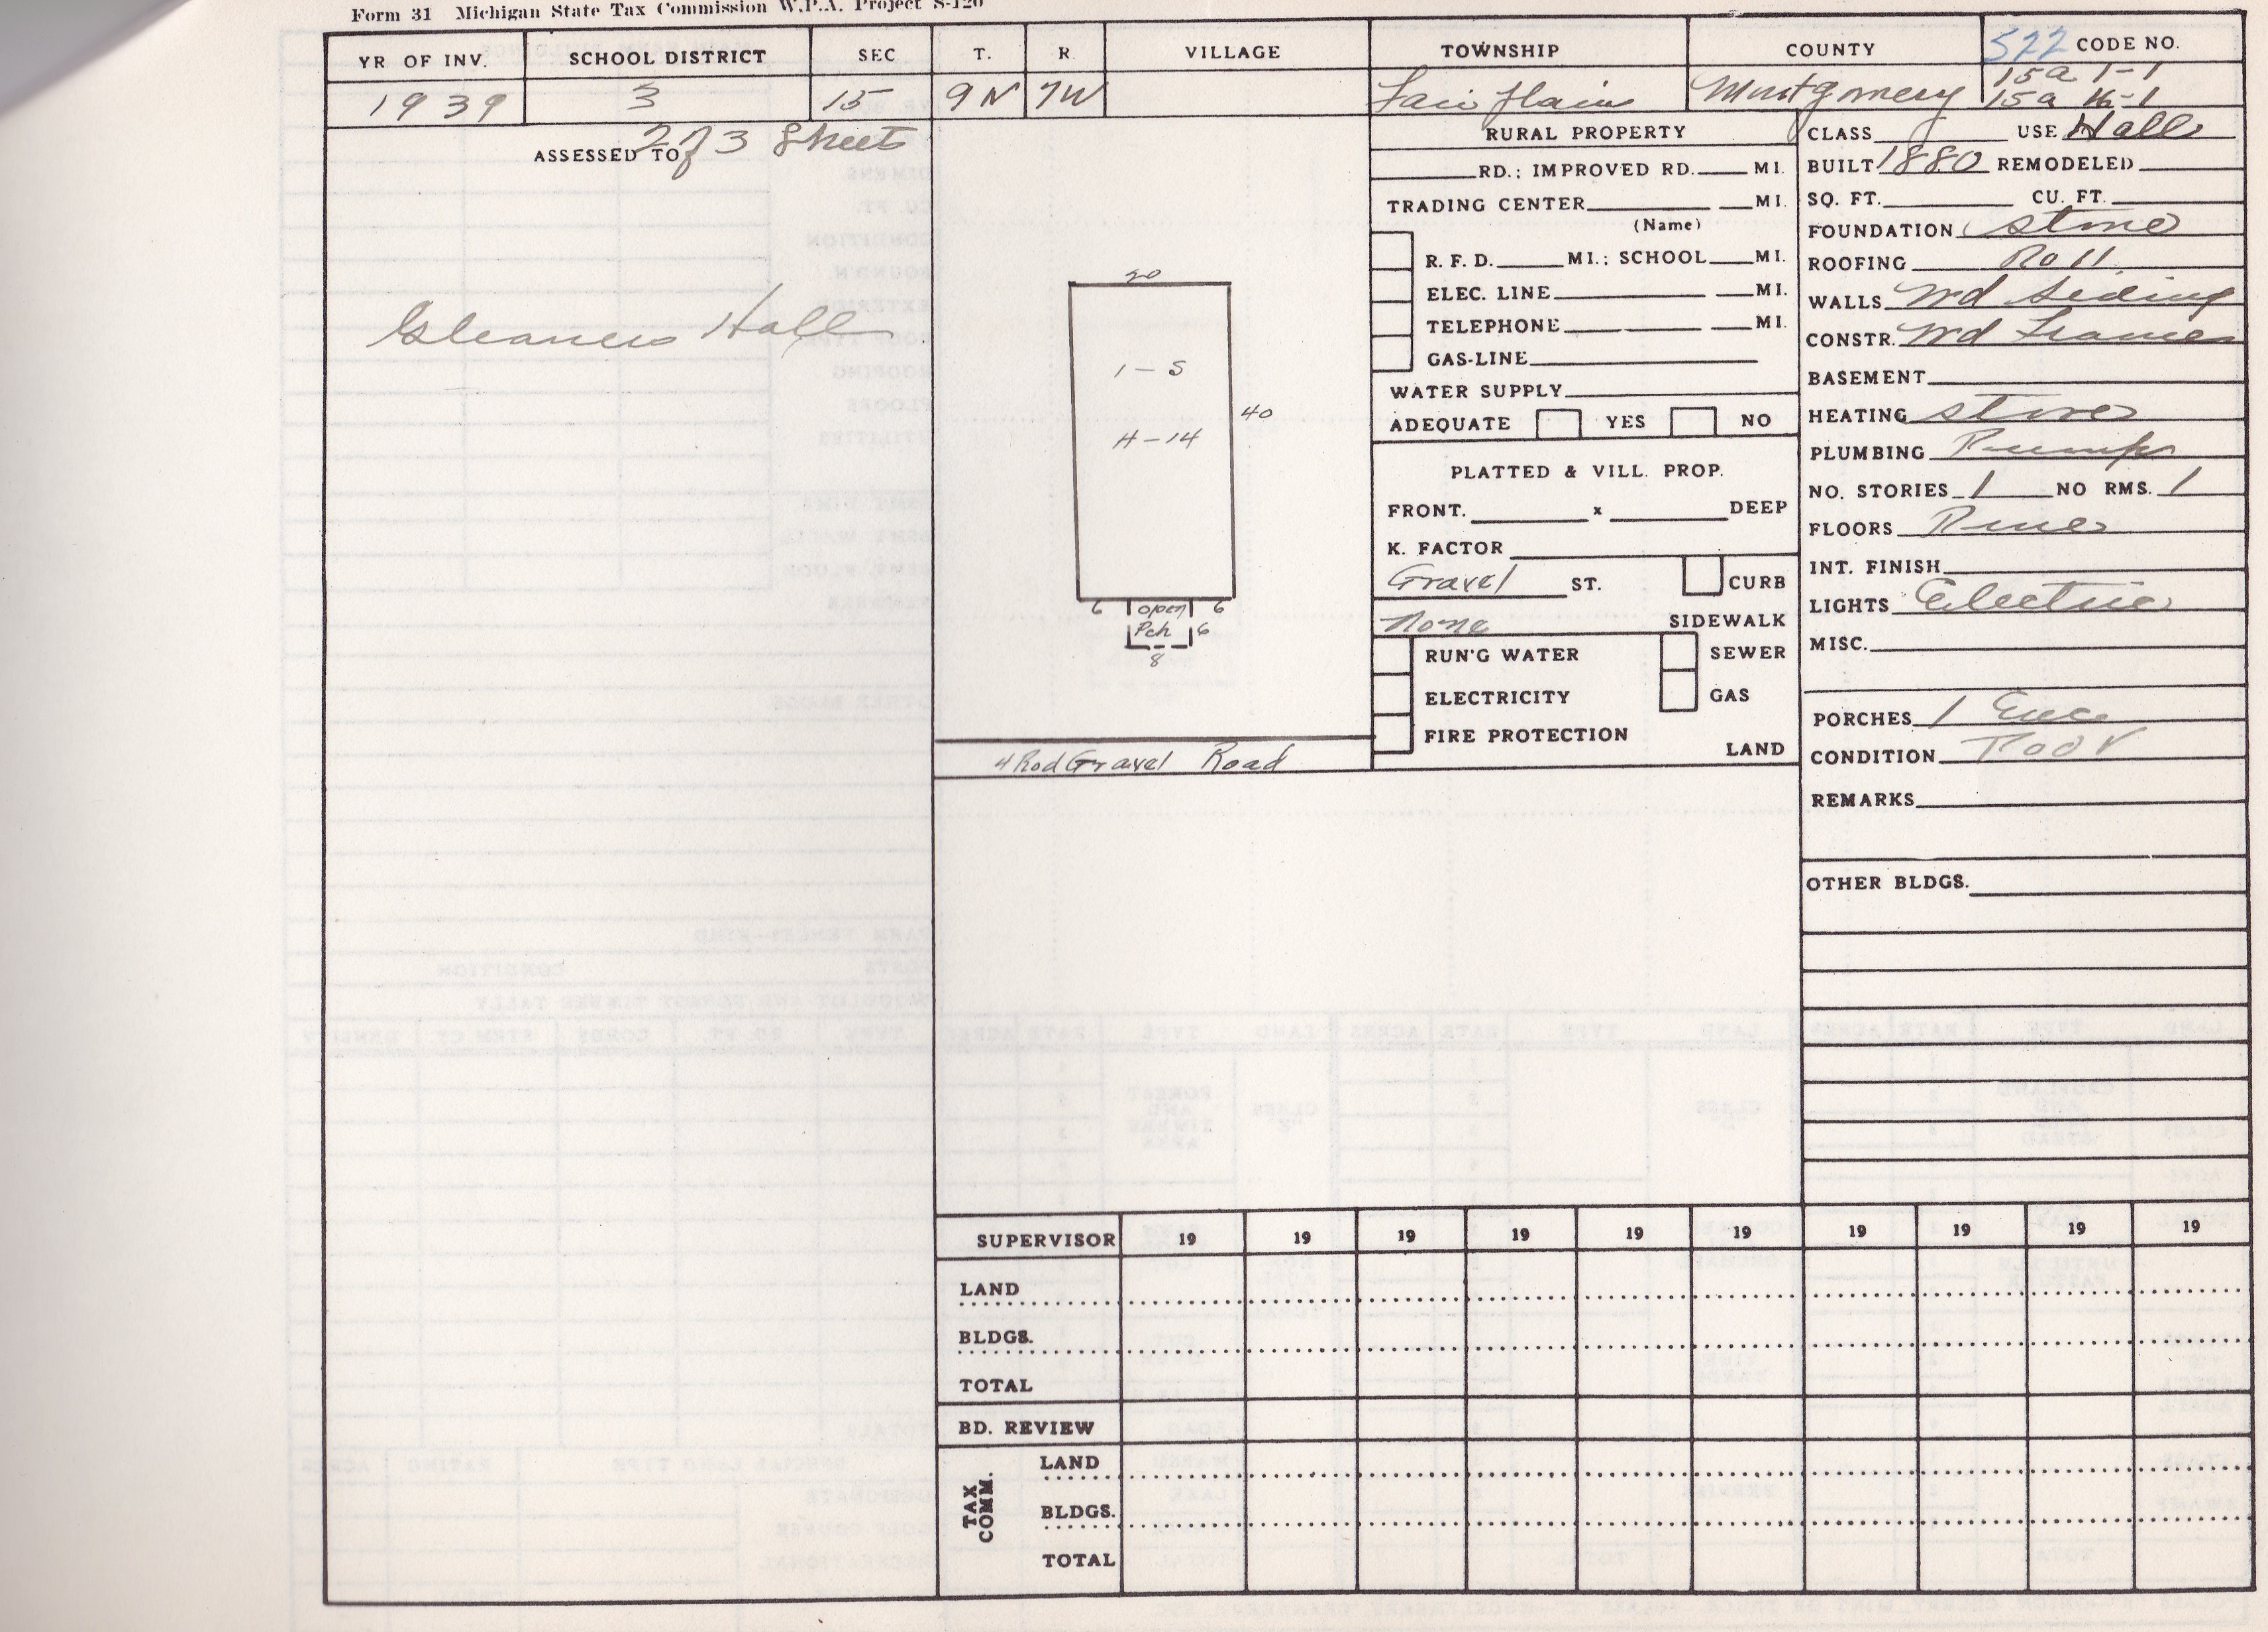 Form 31 Michigan State Tax Commission W.P.A. Project S-120
YR OF INV. SCHOOL DISTRICT SEC T. R. VILLAGE TOWNSHIP COUNTY 522 CODE NO.
1939 3 15 9N 7W Fair Plain Montgomery 15a 1-1
15a
ASSESSED TO 2 of 3 Sheets
Gleaners Hall
20
1-S
40
H-14
6 open 6
Pch 6
8
4 Rod Gravel Road
RURAL PROPERTY
RD.: IMPROVED RD. MI.
TRADING CENTER MI.
(Name)
R. F. D. MI.: SCHOOL MI.
ELEC. LINE MI.
TELEPHONE MI.
GAS-LINE
WATER SUPPLY
ADEQUATE YES NO
PLATTED & VILL. PROP.
FRONT. x DEEP
K. FACTOR
Gravel ST. CURB
None SIDEWALK
RUN'G WATER SEWER
ELECTRICITY GAS
FIRE PROTECTION
LAND
CLASS USE Hall
BUILT 1880 REMODELED
SQ. FT. CU. FT.
FOUNDATION Stone
ROOFING Roll
WALLS Wd Siding
CONSTR. Wd Frame
BASEMENT
HEATING Stove
PLUMBING Pump
NO. STORIES 1 NO RMS. 1
FLOORS Pine
INT. FINISH
LIGHTS Electric
MISC.
PORCHES 1
CONDITION Poor
REMARKS
OTHER BLDGS.
SUPERVISOR 19 19 19 19 19 19 19 19 19 19
LAND
BLDGS.
TOTAL
BD. REVIEW
TAX COMM.
LAND
BLDGS.
TOTAL